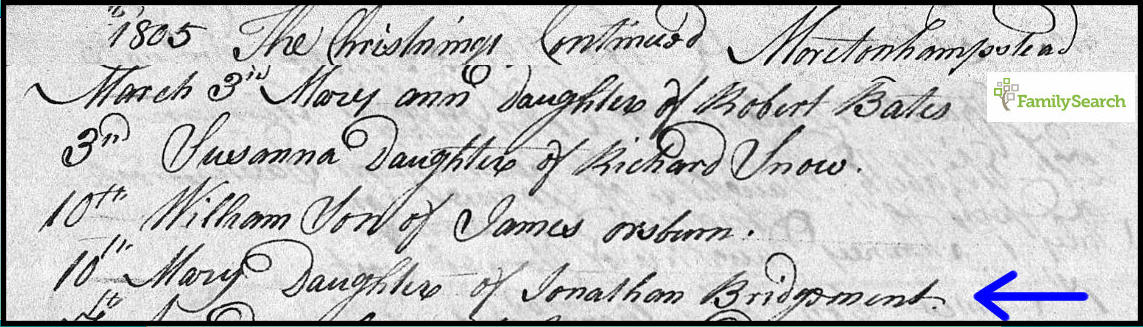 1805 The Christnings Continued Moretonhampstead
March 3rd Mary ann daughter of Robert Bates
FamilySearch
3rd Susanna Daughter of Richard Snow.
10th William Son of James orsburn.
10th Mary Daughter of Jonathan Bridgment.